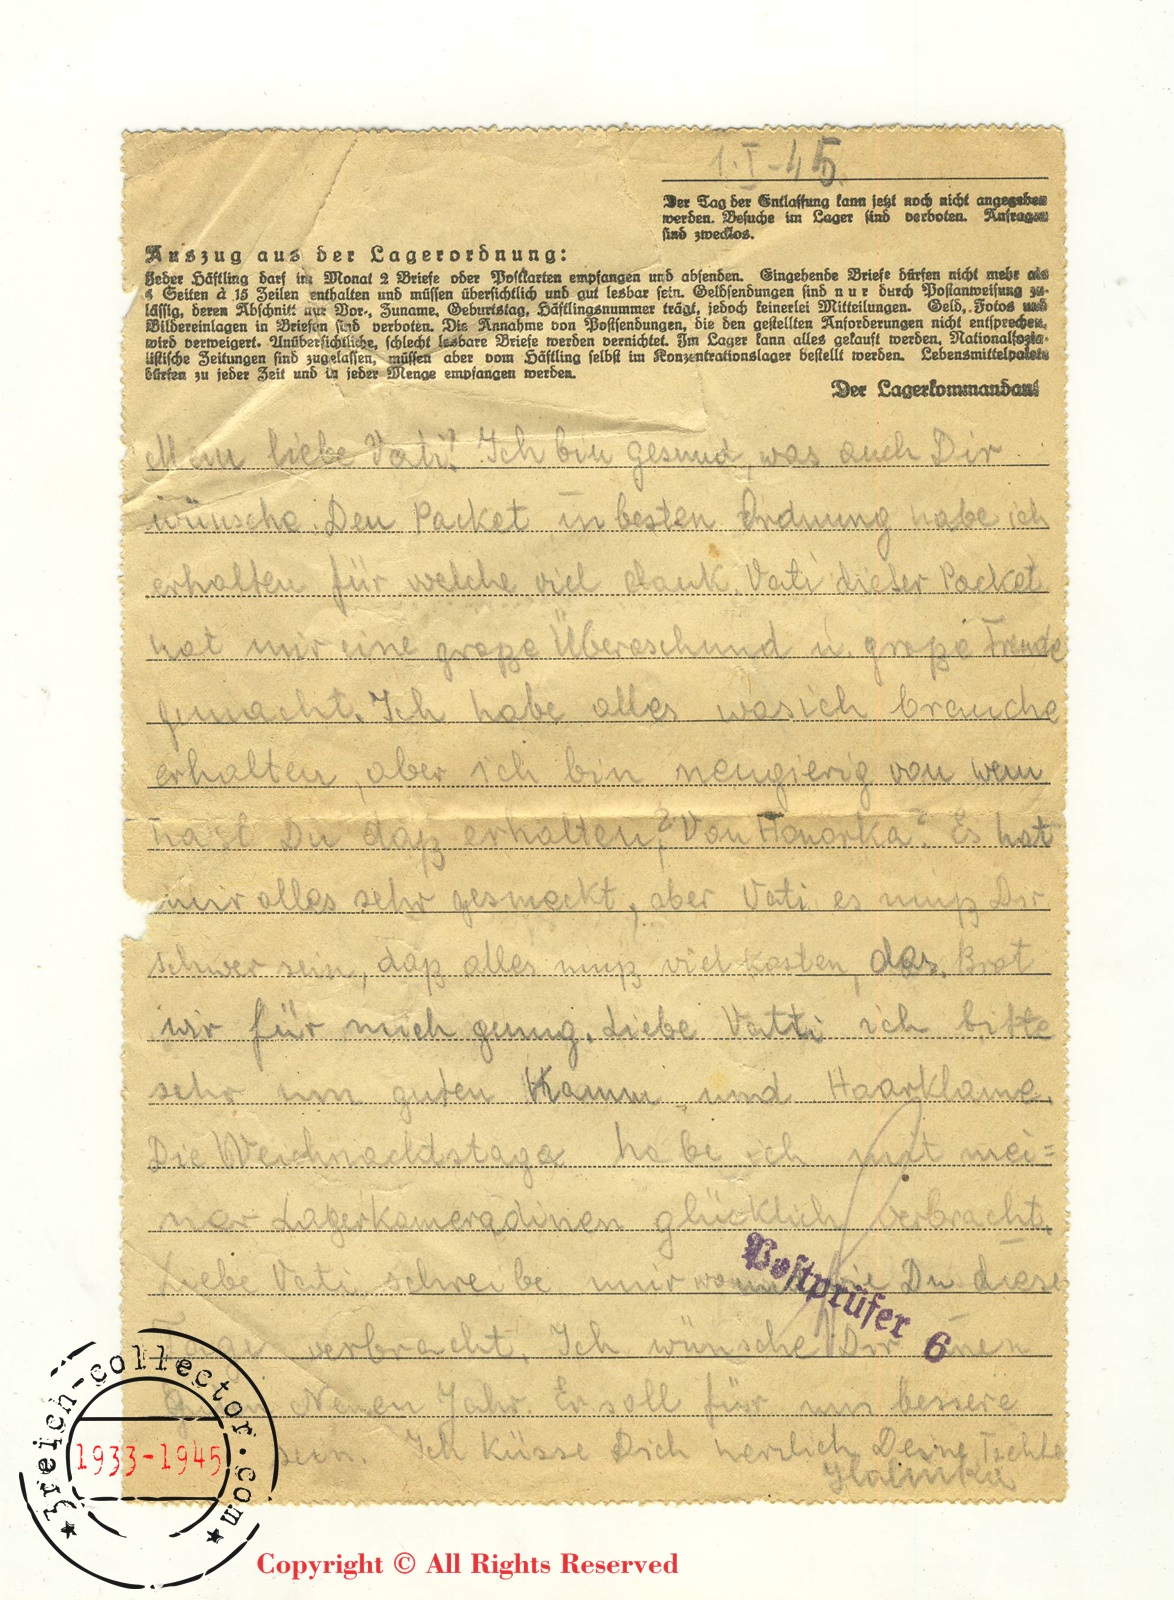 1.I-45.
Der Tag der Entlassung kann jetzt noch nicht angegeben
werden. Besuche im Lager sind verboten. Anfragen
sind zwecklos.
Auszug aus der Lagerordnung:
Jeder Häftling darf im Monat 2 Briefe oder Postkarten empfangen und absenden. Eingehende Briefe dürfen nicht mehr als
4 Seiten à 15 Zeilen enthalten und müssen übersichtlich und gut lesbar sein. Geldsendungen sind nur durch Postanweisung zu-
lässig, deren Abschnitt nur Vor-, Zuname, Geburtstag, Häftlingsnummer trägt, jedoch keinerlei Mitteilungen. Geld, Fotos und
Bildereinlagen in Briefen sind verboten. Die Annahme von Postsendungen, die den gestellten Anforderungen nicht entsprechen,
wird verweigert. Unübersichtliche, schlecht lesbare Briefe werden vernichtet. Im Lager kann alles gekauft werden. Nationalsozia-
listische Zeitungen sind zugelassen, müssen aber vom Häftling selbst im Konzentrationslager bestellt werden. Lebensmittelpakete
dürfen zu jeder Zeit und in jeder Menge empfangen werden.
Der Lagerkommandant
Mein liebe Vati! Ich bin gesund, was auch Dir
wünsche. Den Packet in besten Ordnung habe ich
erhalten für welche viel dank. Vati dieser Packet
hat mir eine große Überaschund u. große Freude
gemacht. Ich habe alles was ich brauche
erhalten, aber ich bin neugierig von wem
hast Du daß erhalten? Von Honorka? Es hat
mir alles sehr gesmeckt, aber Vati es muß Dir
schwer sein, daß alles muß viel kosten, das Brot
wir für mich genug. Liebe Vatti ich bitte
sehr um guten Kamm und Haarklame.
Die Weichnachtstage habe ich mit mei=
ner Lagerkameradinen glücklich verbracht.
Liebe Vati schreibe mir wie Du diese
Tage verbracht. Ich wünsche Dir einen
guten Neuen Jahr. Er soll für uns bessere
sein. Ich küsse Dich herzlich Deine Tochte
Halinka
Postprüfer 6
3reich-collector.com
1933-1945
Copyright © All Rights Reserved